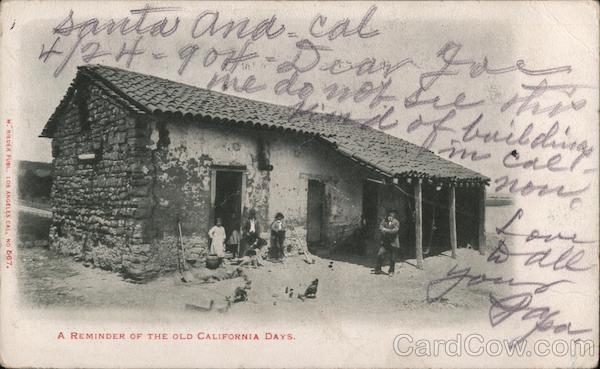 Santa Ana - Cal
4/24 - 904 - Dear Joe
me do not see this
kind of building
in Cal-
now,
Love
to all
yours
Papa,
M. RIEDER PUBL. LOS ANGELES CAL. NO 867.
A REMINDER OF THE OLD CALIFORNIA DAYS.
CardCow.com